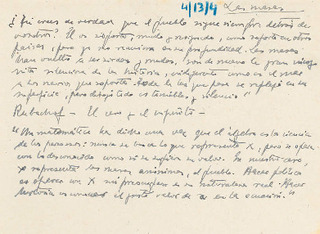 4/13/4 Las masas
¿Mi crees de verdad que el pueblo sigue siempre detrás de
vosotros? El os soporta, mudo y resignado, como soporta en otros
países, pero ya no reacciona en su profundidad. Las masas
han vuelto a ser sordas y mudas, son de nuevo la gran
vida silenciosa de la historia, indiferente como es el mar
a los navíos que soporta. toda la luz que pasa se refleja en su
superficie, para debajo todo es tinieblas y silencio"
Rubachof - El cero y el infinito -
"Un matemático ha dicho una vez que el álgebra es la ciencia
de los perezosos: nunca se busca lo que representa X, pero se opera
con la desconocida como si se supiera su valor. En nuestro caso,
X representa las masas anónimas, el pueblo. Hacer política
es operar con X sin preocuparse de su naturaleza real. Hacer
historia es conocer el justo valor de X en la ecuación."